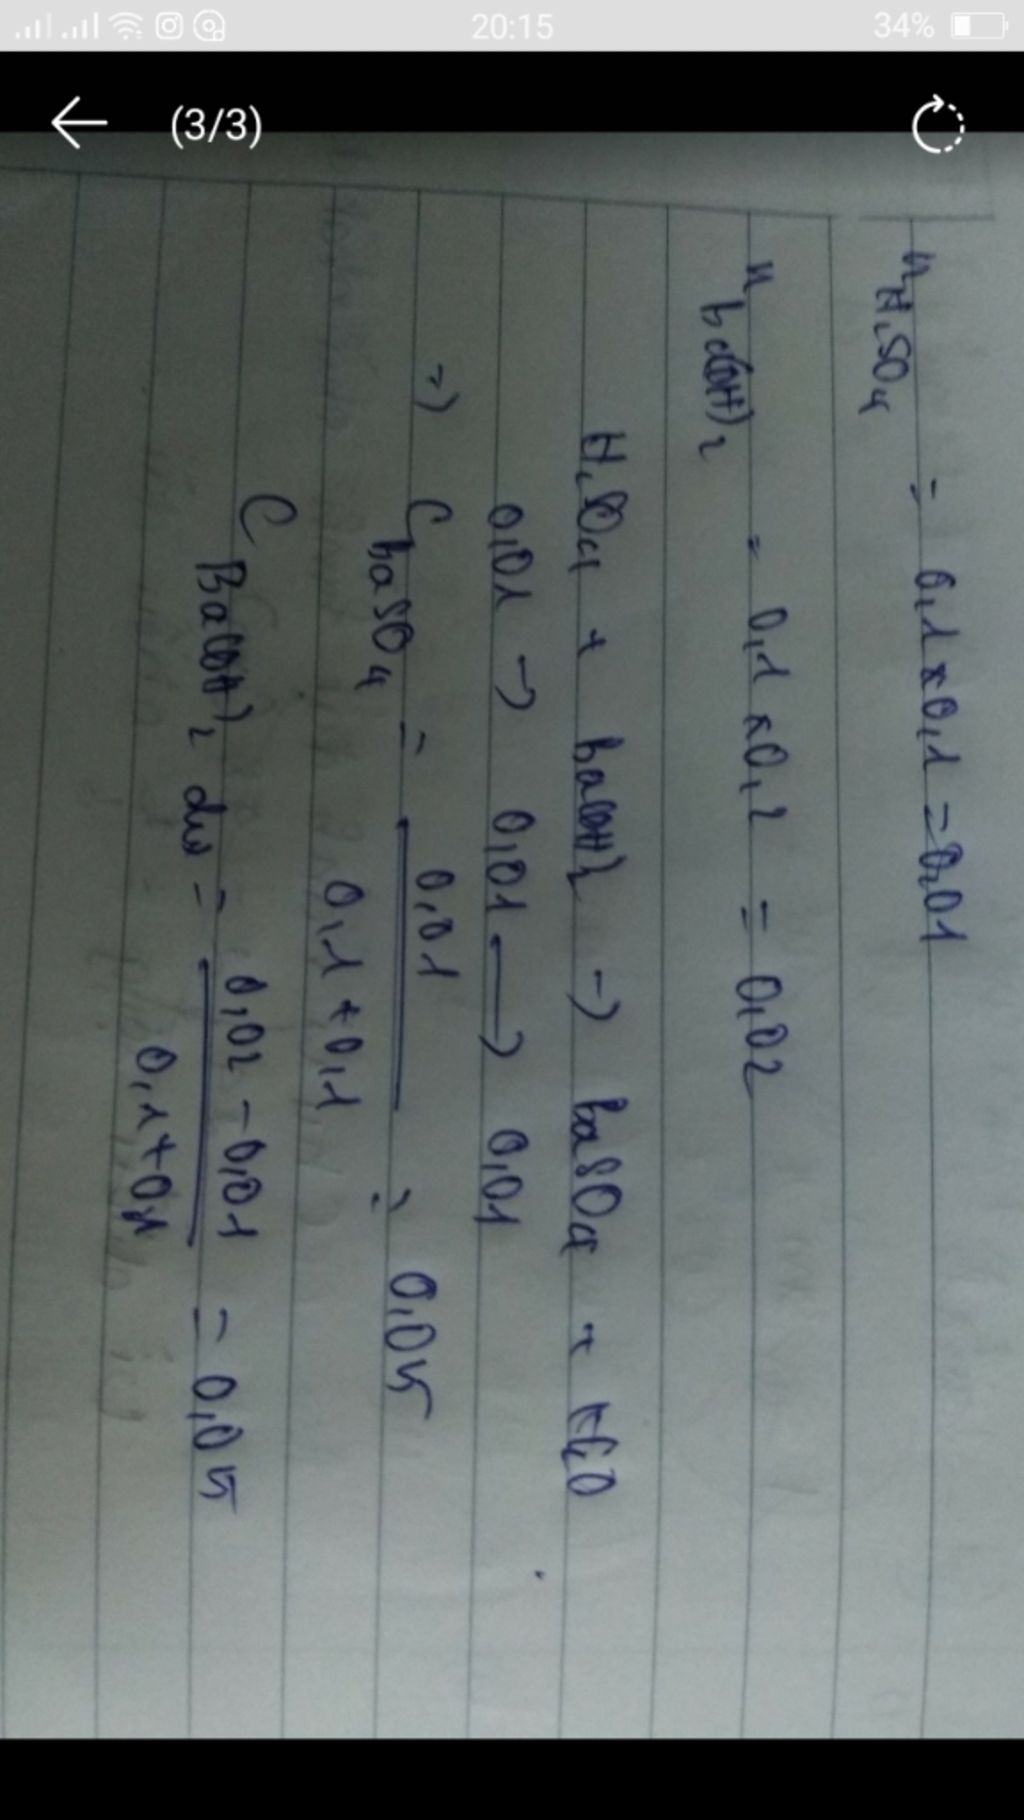 20:15
34%
(3/3)
n H₂SO₄ = 0,1 x 0,1 = 0,01
n ba(OH)₂ = 0,1 x 0,2 = 0,02
H₂SO₄ + ba(OH)₂ → baSO₄ + H₂O
0,01 → 0,01 → 0,01
=) C baSO₄ = 0,01 / 0,1 + 0,1 = 0,05
C Ba(OH)₂ dư = 0,02 - 0,01 / 0,1 + 0,1 = 0,05